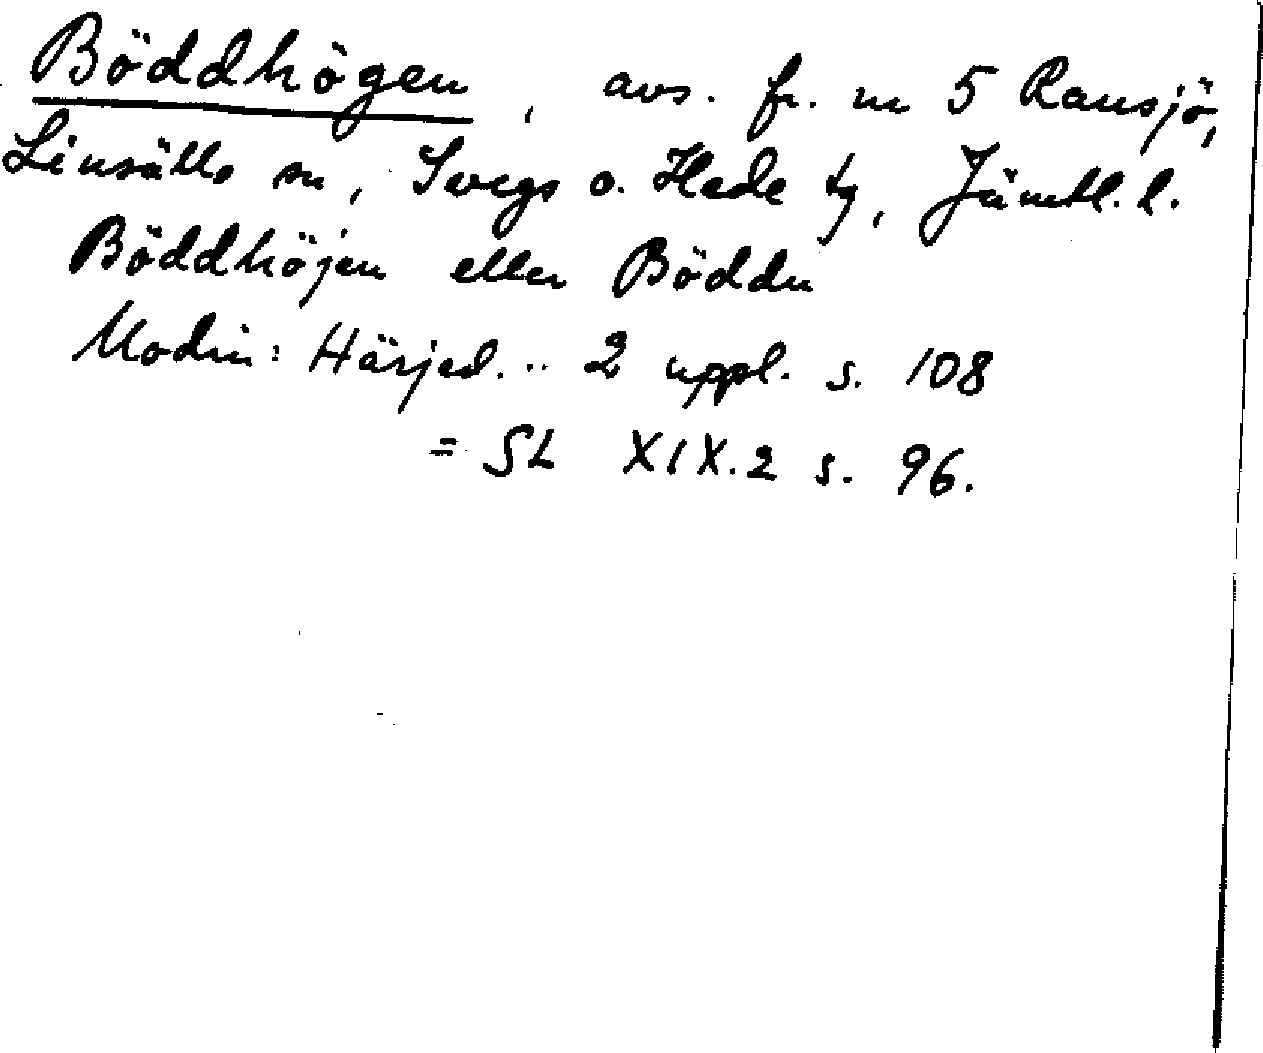 Böddhögen, avs. fr. nr 5 Ransjö,
Linsälls sn, Svegs o. Hede tg, Jämtl. l.
Böddhöjen eller Böddn
Modin: Härjed. .. 2 uppl. s. 108
= SL XIX.2 s. 96.